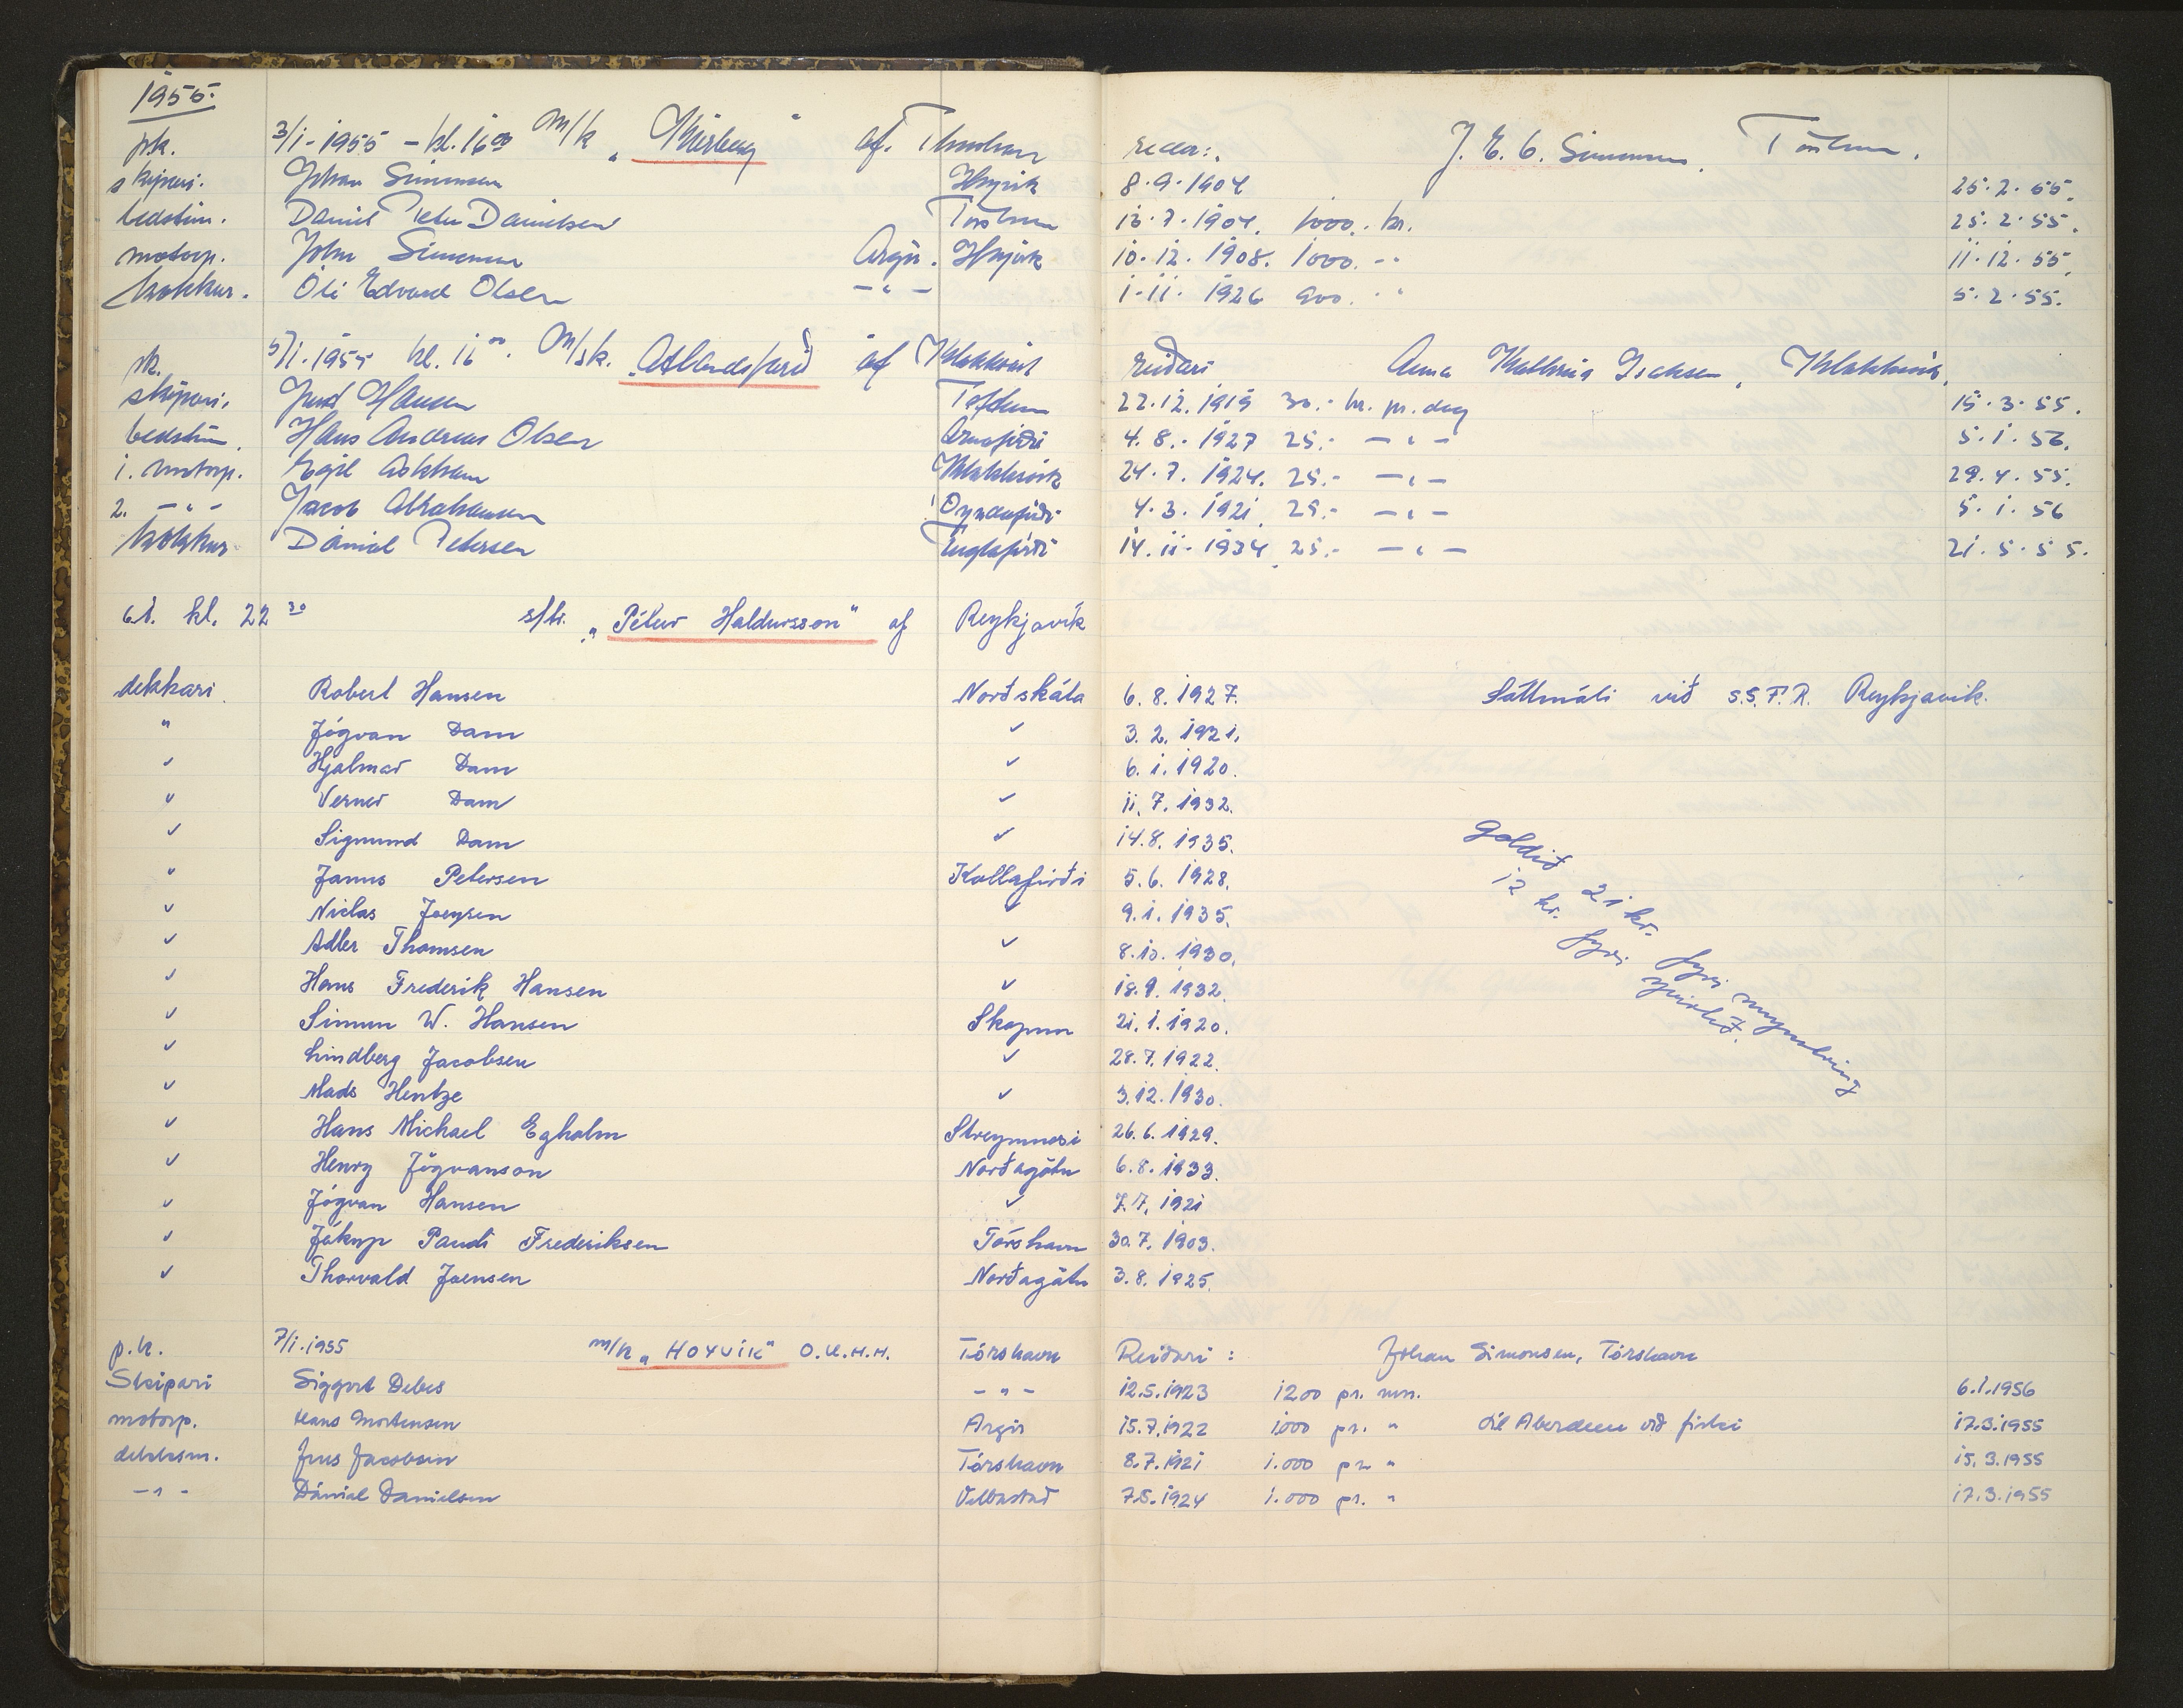 1955.
pk. 3/1-1955 - kl. 16 00 m/k " " af. Thorshavn reder: J. E. C. Simonsen, Tórshavn.
skipari. Johan Simonsen Hoyvik 8.9.1904 25.2.55.
bedstim. Daniel Peter Danielsen Tórshavn 13.7.1904. 1000.- kr. 25.2.55.
motorp. John Simonsen Argir. Hoyvik 10.12.1908. 1000. -" 11.12.55.
kokkur. Óli Edvard Olsen -"- 1.11.1926 900. -" 5.2.55.
pk. 5/1.1955 kl. 16 00. M/sk. "Atlandsfarið af Klakksvík Reiðari Anna Kathrina Isaksen, Klakksvík.
skipari. Hansen Toftum 22.12.1919 30.- kr. pr. dag 15.3.55.
bedstim. Hans Andreas Olsen Árnafirði 4.8.-1927 25.- -"- 5.1.56.
1. motorp. Egil Askham Klakksvík 24.7.1924. 25.- -"- 29.4.55.
2. -"- Jacob Abrahamsen Oyndarfirði 4.3.1921. 29.- -"- 5.1.56
kokkur Dánial Petersen Fuglafirði 14.11.1934. 25.- -"- 21.5.55.
6/1. kl. 22 30 s/tr. "Pétur Haldursson" af Reykjavík
dekkari Robert Hansen Norðskála 6.8.1927. Sáttmáli við S.S.F.R. Reykjavik.
" Jógvan Dam " 3.2.1921.
" Hjalmar Dam " 6.1.1920.
" Verner Dam " 11.7.1932.
" Sigmund Dam " 14.8.1935.
" Janus Petersen Kollafirði 5.6.1928.
" Niclas Joensen " 9.1.1935.
" Adler Thomsen " 8.10.1930.
" Hans Frederik Hansen " 18.9.1932.
" Simun W. Hansen Skopun 21.1.1920.
" Lindberg Jacobsen " 28.7.1922.
" Mads Hentze " 3.12.1930.
" Hans Michael Egholm Streymnesi 26.6.1929.
" Henry Jógvanson Norðagøtu 6.8.1933.
" Jógvan Hansen " 7.7.1921
" Jákup Pauli Frederiksen Tórshavn 30.7.1903.
" Thorvald Joensen Norðagøtu 3.8.1925.
Goldið 21 kr. fyri mynstring
12 kr. fyri
p.k. 7/1.1955 m/k "HOYVÍK" O.K.H.H. Tórshavn Reiðari: Johan Simonsen, Tórshavn
Skipari Siggert Debes -"- 12.5.1923 1200 pr. mn. 6.1.1956
motorp. Hans Mortensen Argir 15.7.1922 1000 pr. " til Aberdeen við fiski 17.3.1955
dekksm. Jens Jacobsen Tórshavn 8.7.1921 1.000 pr. " 15.3.1955
-"- Dánial Danielsen Velbastað 7.5.1924 1.000 pr. " 17.3.1955